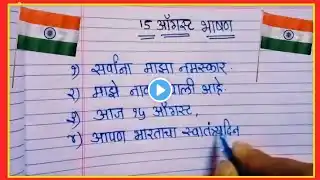 १५ ऑगस्ट भाषण
१) सर्वांना माझा नमस्कार.
२) माझे आहे.
३) आज १५ ऑगस्ट,
४) आपण भारताचा स्वातंत्र्यदिन